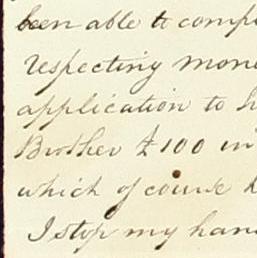 been able to comp
respecting mone
application to h
Brother £100 in
which of course
I stop my han